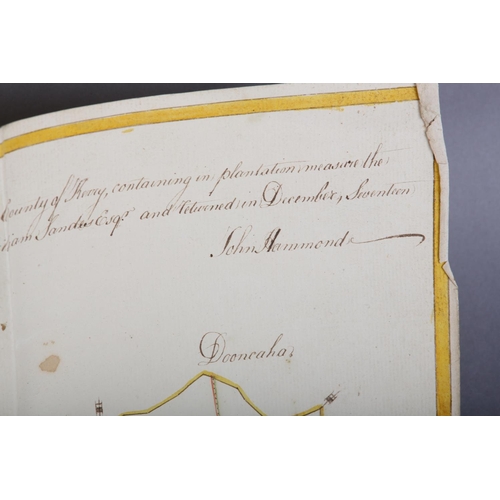 County of Kerry, containing in plantation measure the
iam Sandes Esqr. and retrened in December, Seventeen
John Hammond
Dooncaha